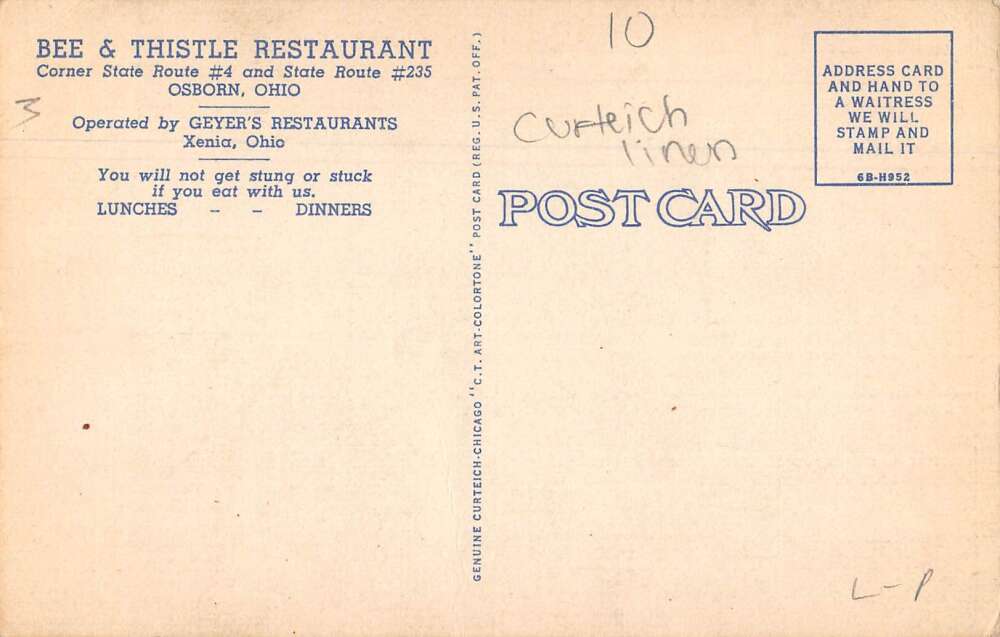 BEE & THISTLE RESTAURANT
Corner State Route #4 and State Route #235
OSBORN, OHIO
Operated by GEYER'S RESTAURANTS
Xenia, Ohio
You will not get stung or stuck
if you eat with us.
LUNCHES - - DINNERS
3
GENUINE CURTEICH-CHICAGO "C.T. ART-COLORTONE" POST CARD (REG. U.S. PAT. OFF.)
10
Curteich
linen
POST CARD
ADDRESS CARD
AND HAND TO
A WAITRESS
WE WILL
STAMP AND
MAIL IT
6B-H952
L-P